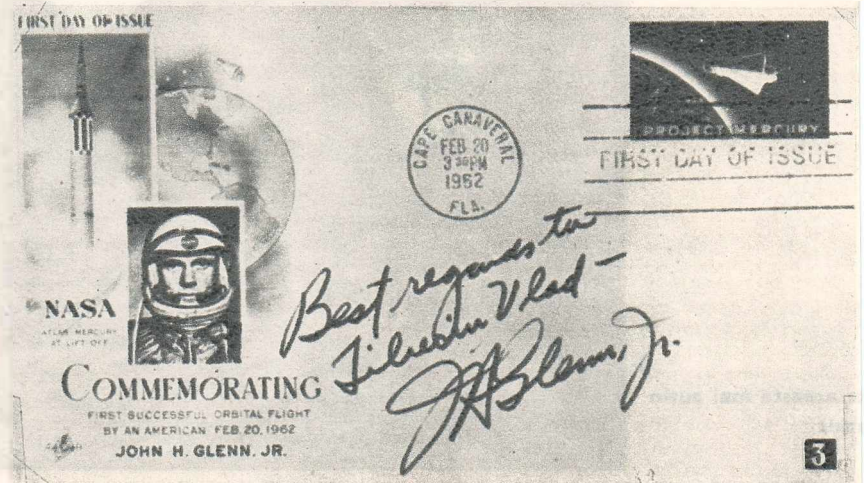 FIRST DAY OF ISSUE
NASA
ATLAS MERCURY
AT LIFT-OFF
COMMEMORATING
FIRST SUCCESSFUL ORBITAL FLIGHT
BY AN AMERICAN FEB. 20, 1962
JOHN H. GLENN, JR.
CAPE CANAVERAL
FEB 20
3 30 PM
1962
FLA.
PROJECT MERCURY
FIRST DAY OF ISSUE
Best regards to
Vlad –
JH Glenn, Jr.
3